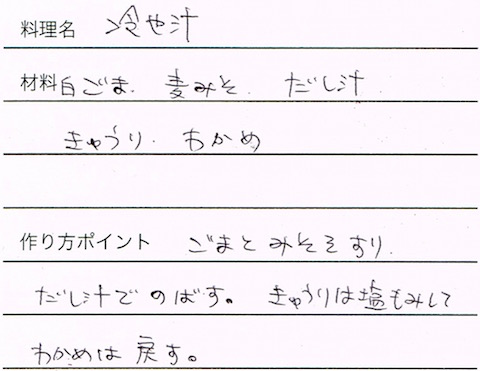 料理名 冷や汁
材料 白ごま. 麦みそ. だし汁.
きゅうり. わかめ
作り方ポイント ごまとみそをすり.
だし汁でのばす。 きゅうりは塩もみして
わかめは戻す。